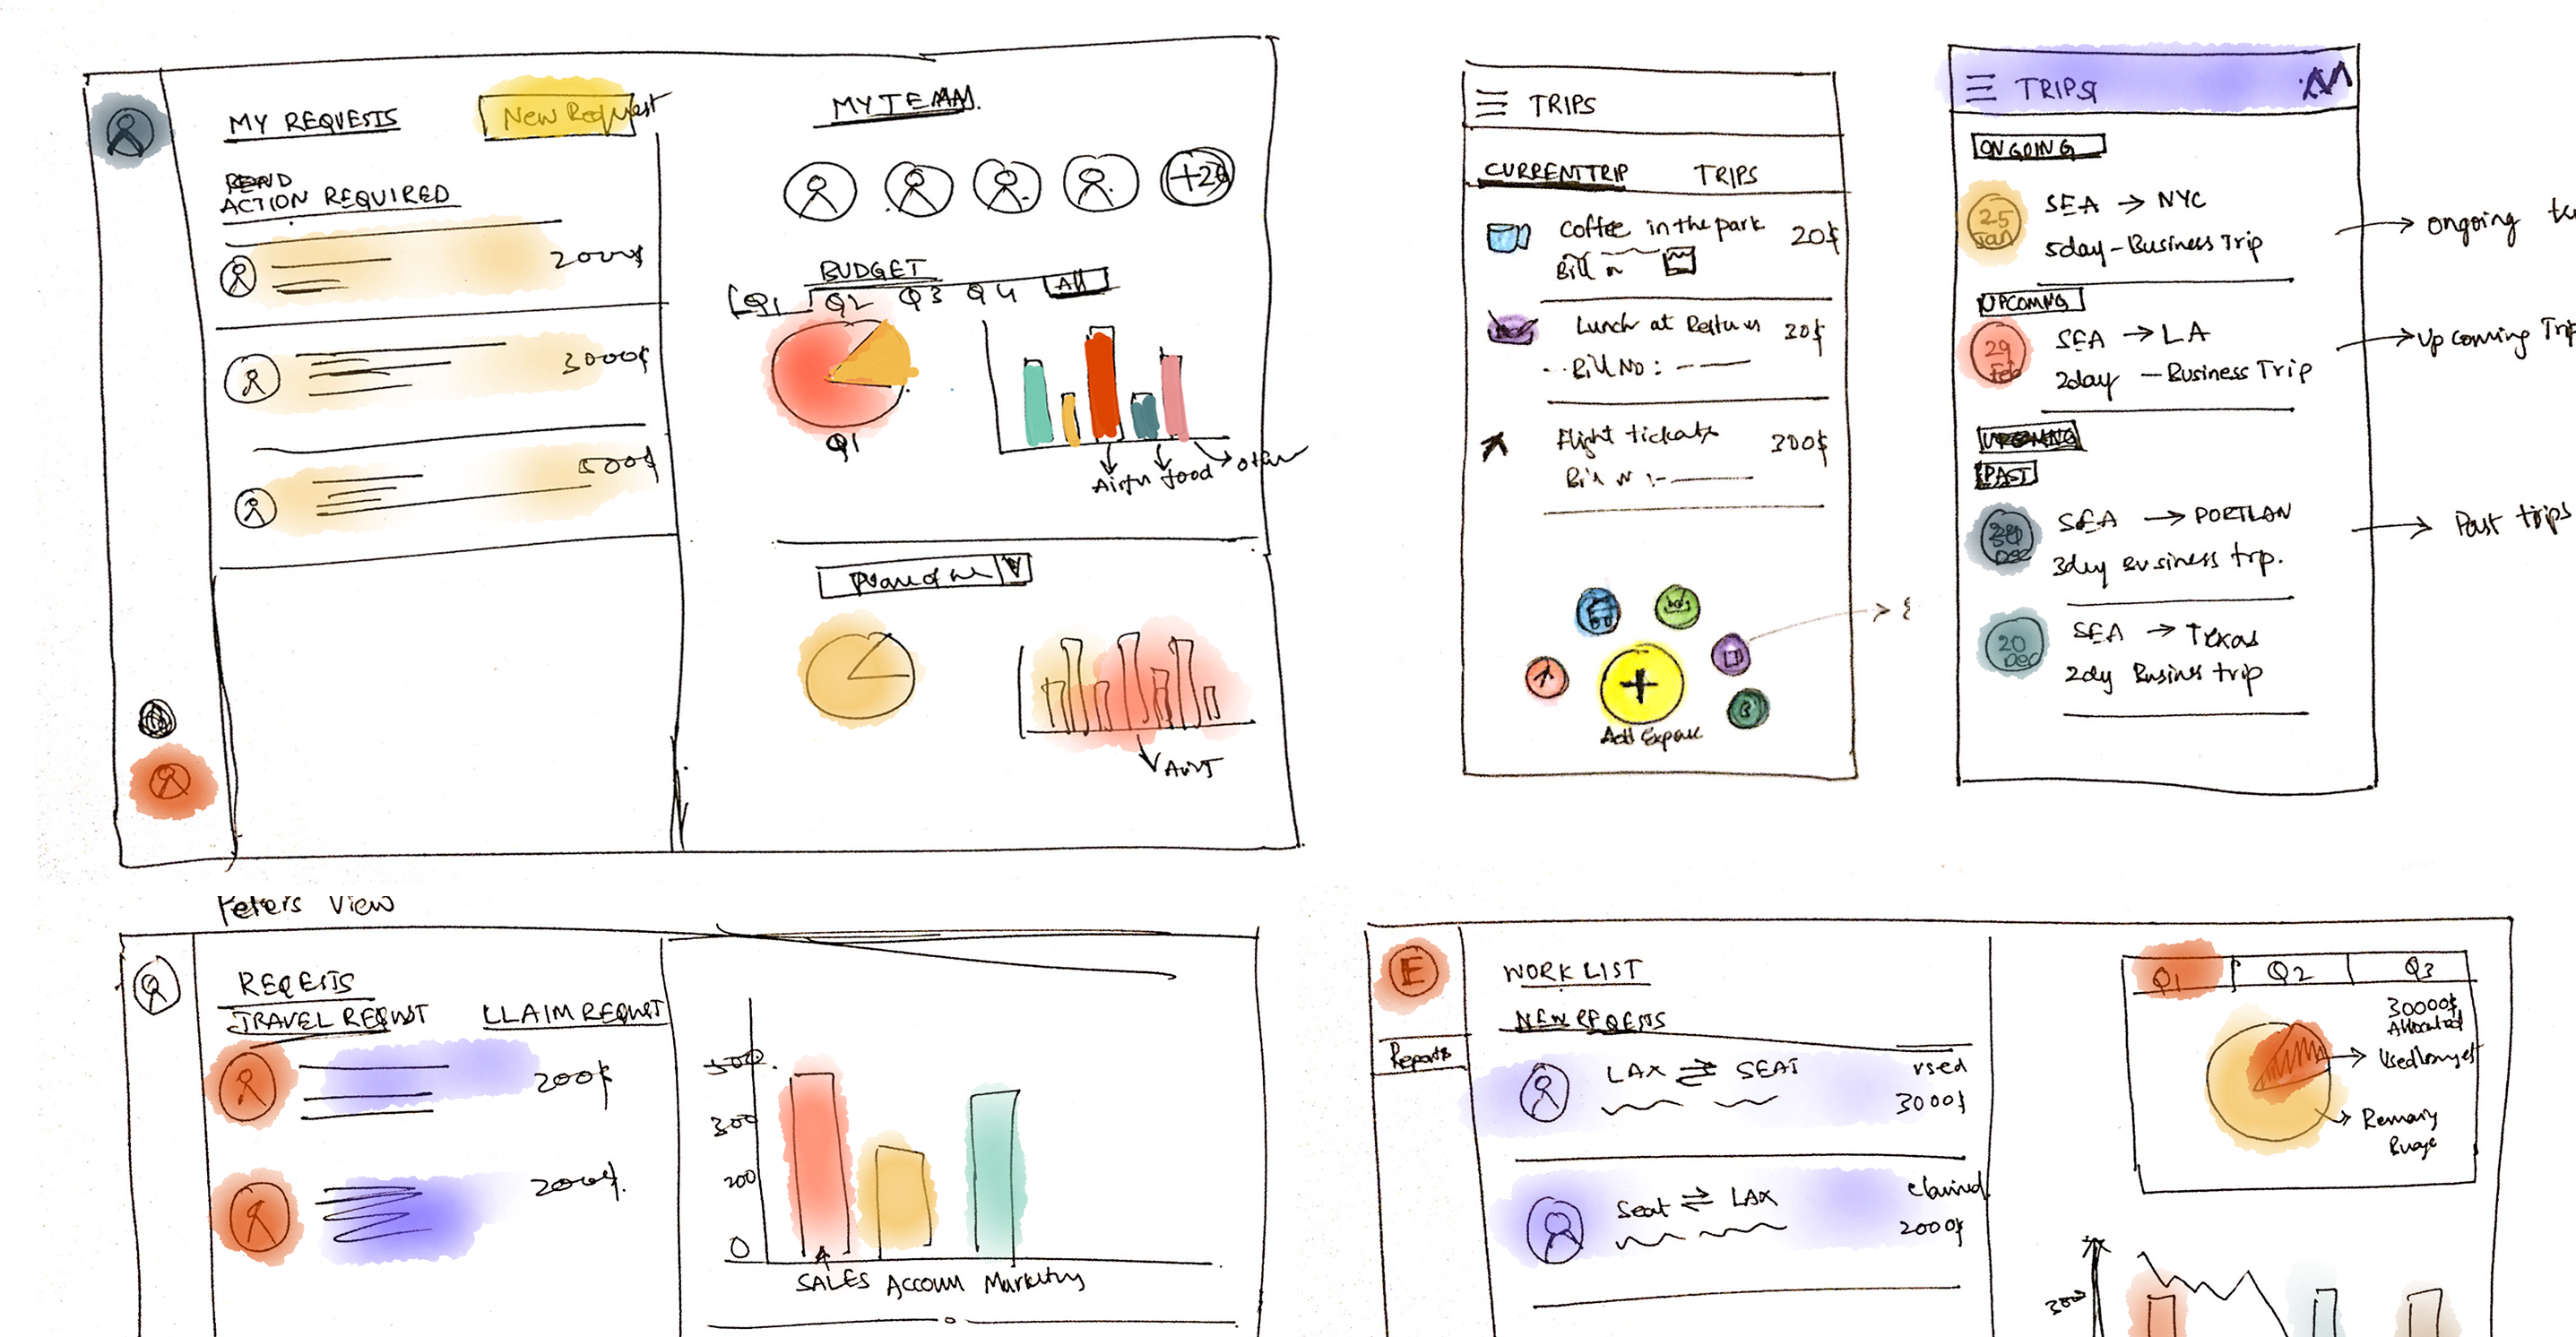 MY REQUESTS
New Request
ACTION REQUIRED
2000$
3000$
500$
MY TEAM.
+26
BUDGET
Q1 Q2 Q3 Q4 All
Q1
food
TRIPS
CURRENT TRIP TRIPS
Coffee in the park 20$
Bill n
Lunch at 30$
Bill No:
Flight tickets 300$
Add
TRIPS
ONGOING
25 Jan
SEA → NYC
5day - Business Trip
→ ongoing
UPCOMNG
29 Feb
SEA → LA
2day - Business Trip
→ Up coming Trip
PAST
Dec
SEA → PORTLAN
3day Business trip.
→ Past trips
20 Dec
SEA → Texas
2day Busines trip
Peters View
REQESTS
TRAVEL REQUST CLAIM REQUST
200$
2000$.
500
300
200
0
SALES Accoun Marketing
E
Reports
WORK LIST
NEW REQESTS
LAX ⇌ SEAT
used
3000$
Seat ⇌ LAX
claimed
2000$
Q1 Q2 Q3
30000$
Allocated
→ Used
→
300